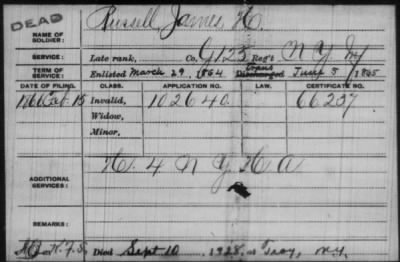 DEAD
NAME OF SOLDIER: Russell James H.
SERVICE: Late rank, Co. G 123 Reg't N Y Inf
TERM OF SERVICE: Enlisted March 29, 1864 Trans Discharged June 8, 1865
DATE OF FILING. CLASS. APPLICATION NO. LAW. CERTIFICATE NO.
1866 15 Invalid, 102640 66237
Widow,
Minor.
ADDITIONAL SERVICES: K. 4 N Y H A
REMARKS:
Died Sept 10, 1928, at Troy, N.Y.